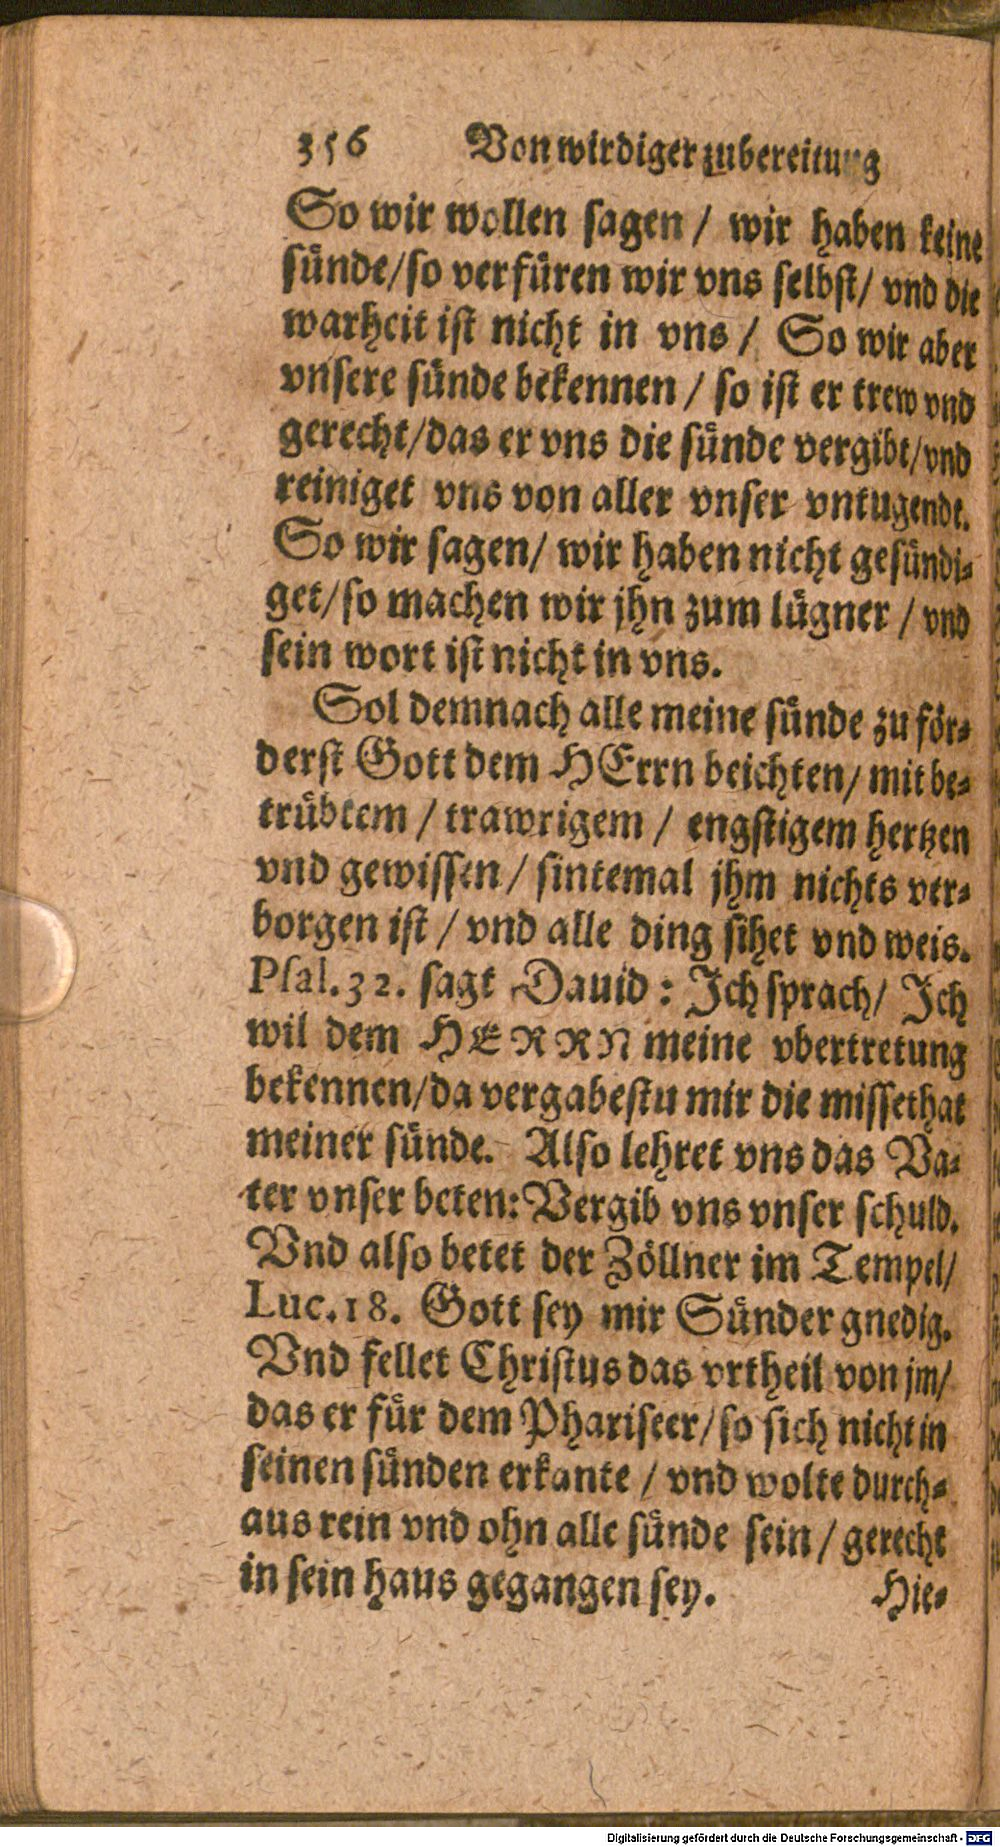 356 Von wirdiger zubereitung
So wir wollen sagen / wir haben keine
sünde/so verfüren wir vns selbst/ vnd die
warheit ist nicht in vns / So wir aber
vnsere sünde bekennen / so ist er trew vnd
gerecht/das er vns die sünde vergibt/vnd
reiniget vns von aller vnser vntugendt.
So wir sagen/ wir haben nicht gesündi-
get/so machen wir jhn zum lügner / vnd
sein wort ist nicht in vns.
Sol demnach alle meine sünde zu för-
derst Gott dem HErrn beichten/ mit be-
trübtem / trawrigem / engstigem hertzen
vnd gewissen / sintemal jhm nichts ver-
borgen ist / vnd alle ding sihet vnd weis.
Psal.32. sagt Dauid: Ich sprach/ Ich
wil dem HERRN meine vbertretung
bekennen/da vergabestu mir die missethat
meiner sünde. Also lehret vns das Va-
ter vnser beten: Vergib vns vnser schuld.
Vnd also betet der Zöllner im Tempel/
Luc.18. Gott sey mir Sünder gnedig.
Vnd fellet Christus das vrtheil von jm/
das er für dem Phariseer/so sich nicht in
seinen sünden erkante / vnd wolte durch-
aus rein vnd ohn alle sünde sein / gerecht
in sein haus gegangen sey. Hie-
Digitalisierung gefördert durch die Deutsche Forschungsgemeinschaft - DFG